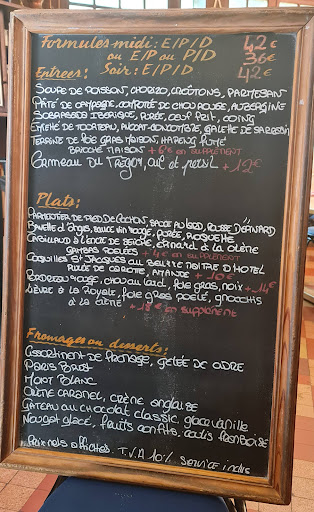 Formules midi: E/P/D 42€
ou E/P ou P/D 36€
Entrées: Soir: E/P/D 42€
Soupe de poisson, chorizo, croûtons, parmesan
Pâté de campagne, compotée de chou rouge, aubergine
Sobrassada ibérique, purée, oeuf frit, coing
Effilé de tourteau, avocat-concombre, galette de sarrasin
Terrine de foie gras maison, hareng fumé
brioche maison + 6€ en supplément
Ormeau du Trégor, ail et persil + 12€
Plats:
Parmentier de pied de cochon, sauce au
Bavette d'Angus, sauce vin rouge, purée, roquette
Cabillaud à l'encre de seiche, épinard à la crème
gambas poêlées + 4€ en supplément
Coquilles St Jacques au beurre maître d'hôtel
purée de carotte, amande + 10€
Perdreau rouge, chou au lard, foie gras, noix + 14€
Lièvre à la Royale, foie gras poêlé, gnocchis
à la crème + 18€ en supplément
Fromages ou desserts:
Assortiment de fromage, gelée de cidre
Paris Brest
Mont Blanc
Crème caramel, crème anglaise
Gâteau au chocolat classic, glace vanille
Nougat glacé, fruits confits, coulis framboise
Prix nets affichés. T.V.A 10% service inclus